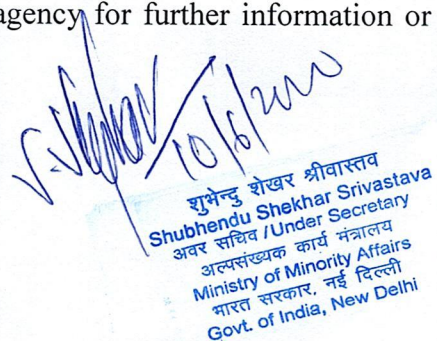 agency for further information or
10/6/2020
शुभेन्दु शेखर श्रीवास्तव
Shubhendu Shekhar Srivastava
अवर सचिव /Under Secretary
अल्पसंख्यक कार्य मंत्रालय
Ministry of Minority Affairs
भारत सरकार, नई दिल्ली
Govt. of India, New Delhi